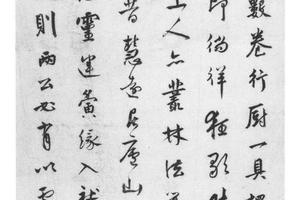 數卷行厨一具
即徜徉狂歌
上人亦叢林法
昔慧遠居廬山
靈運夤緣入
則兩公必有以